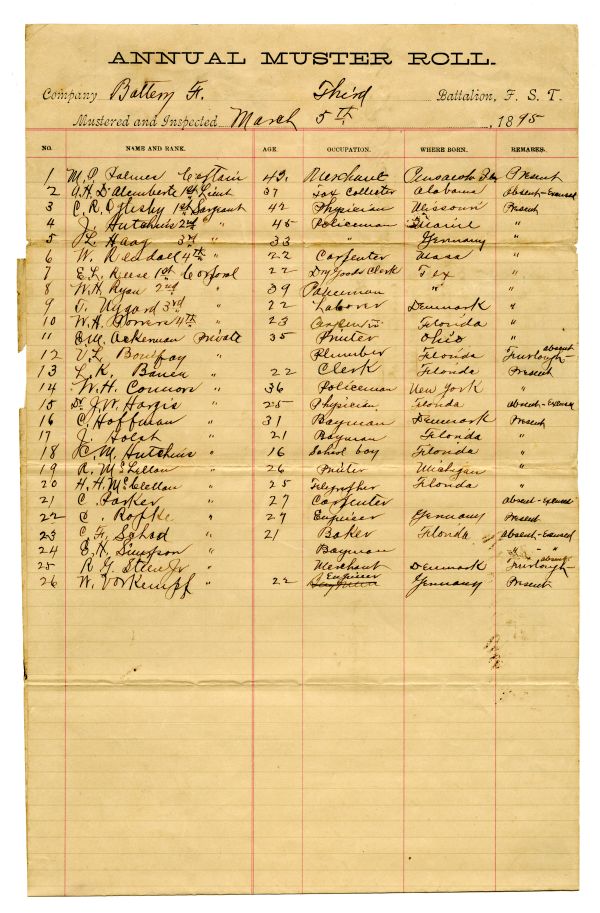 ANNUAL MUSTER ROLL.
Company Battery F. Third Battalion, F. S. T.
Mustered and Inspected March 5th, 1895
NO. NAME AND RANK. AGE OCCUPATION. WHERE BORN. REMARKS.
1 M. P. Palmer Captain 43. Merchant Pensacola Fla Present
2 A. H. D'Alemberte 1st Lieut 37 Tax Collector Alabama absent-Excused
3 C. R. Oglesby 1st Sargeant 42 Physician Missouri Present
4 J. Hutchins 2nd " 45 Policeman Maine "
5 J. L. Haag 3rd " 33 " Germany "
6 W. Rendall 4th " 22 Carpenter Mass "
7 E. L. Reese 1st Corporal 22 Dry Goods Clerk Tex "
8 W. H. Ryan 2nd " 39 Policeman " "
9 T. Nygard 3rd " 22 Laborer Denmark "
10 W. H. Bowers 4th " 23 Carpenter Florida "
11 E. M. Ackerman Private 35 Printer Ohio "
12 V. L. Bonifay " Plumber Florida absent Furlough-
13 L. K. " 22 Clerk Florida Present
14 W. H. Connors " 36 Policeman New York "
15 Dr. J. W. Hargis " 25 Physician Florida absent-Excused
16 C. Hoffman " 31 Bayman Denmark Present
17 J. " 21 Bayman Florida "
18 C. M. Hutchins " 16 School boy Florida "
19 A. McLellan " 26 Printer Michigan "
20 H. H. McClellan " 25 Florida "
21 C. Parker " 27 Carpenter absent-excused
22 C. " 27 Engineer Germany Present
23 C. F. Schad " 21 Baker Florida absent-Excused
24 E. H. Simpson " Bayman " "
25 R. G. Steen Jr " Merchant Denmark absent Furlough-
26 W. Vorkempf " 22 Engineer Germany Present